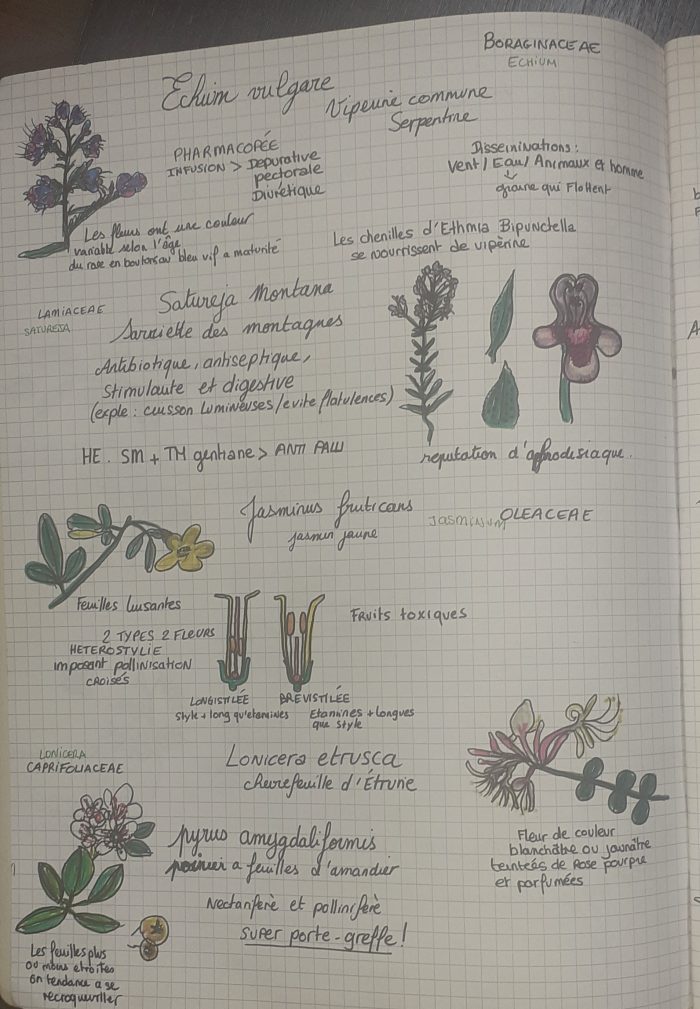 BORAGINACEAE
ECHIUM
Echium vulgare
Vipérine commune
Serpentine
PHARMACOPÉE
INFUSION > Dépurative
pectorale
Diurétique
Disséminations :
Vent / Eau / Animaux et homme
graine qui Flottent
Les fleurs ont une couleur
variable selon l'âge
du rose en boutons au bleu vif a maturité
Les chenilles d'Ethmia Bipunctella
se nourrissent de vipérine
LAMIACEAE
SATUREJA
Satureja Montana
Sarriette des montagnes
Antibiotique, antiseptique,
stimulante et digestive
(exple : cuisson lumineuses / evite flatulences)
HE. SM + TM genhane > ANTI PALU
reputation d'aphrodesiaque.
Jasminus fruticans
jasmin jaune
JASMINUM OLEACEAE
Feuilles luisantes
2 TYPES 2 FLEURS
HETEROSTYLIE
imposant pollinisation
CROISÉS
Fruits toxiques
LONGISTILÉE
style + long qu'etamines
BRÉVISTILÉE
Etamines + longues
que style
LONICERA
CAPRIFOLIACEAE
Lonicera etrusca
chevrefeuille d'Étrurie
Fleur de couleur
blanchâtre ou jaunâtre
teinteés de Rose pourpre
et parfumées
pyrus amygdaliformis
poirier a feuilles d'amandier
Nectarifère et pollinifère
super porte-greffe !
Les feuilles plus
ou moins etroites
on tendance a se
recroqueviller